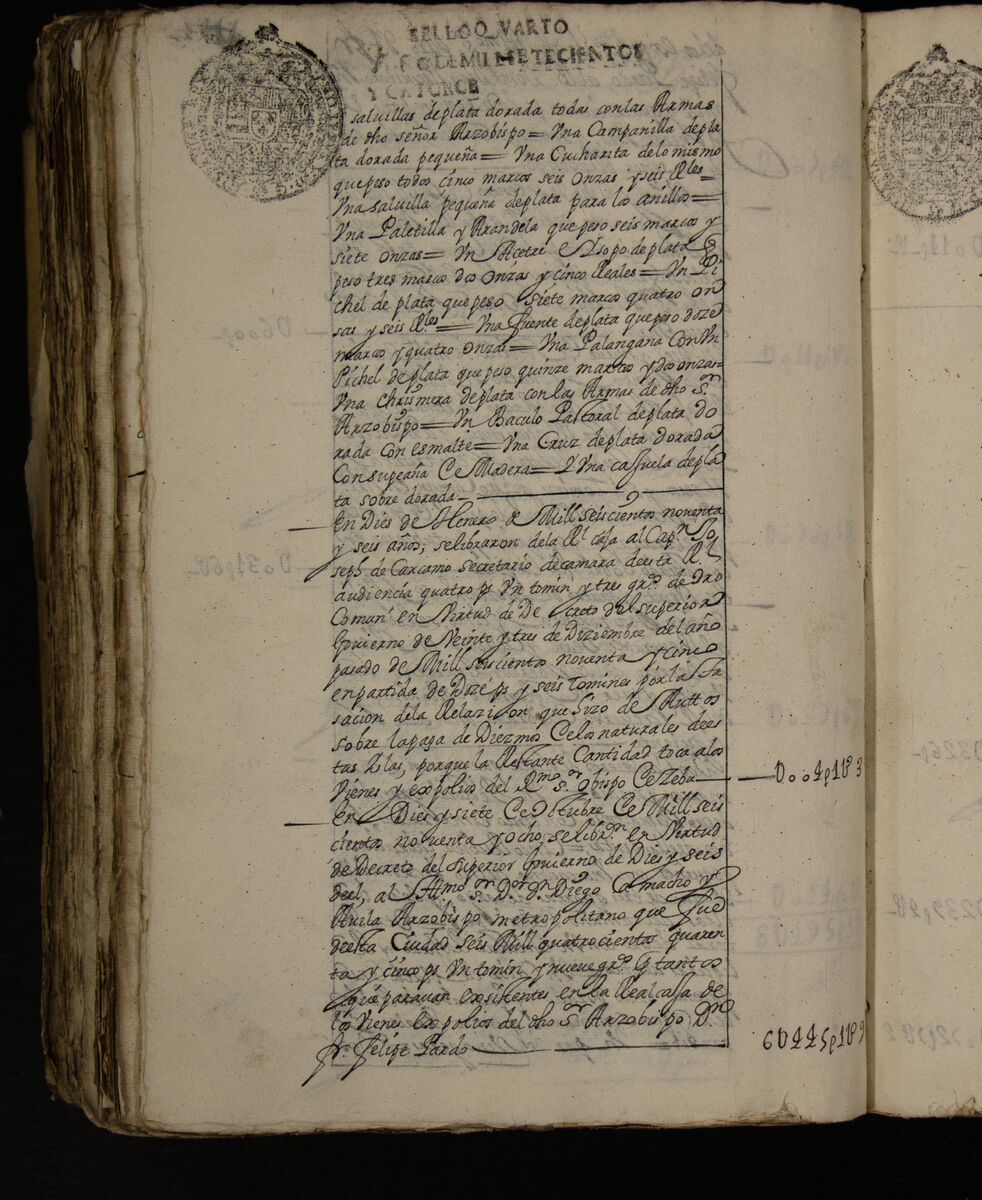 SELLO QVARTO
Y SEGLEMIL SETECIENTOS
Y CATORCE
salvillas de plata dorada todas con las Armas
de dho señor Arzobispo = Vna Campanilla de pla
ta dorada pequeña = Vna Cucharita de lo mismo
que peso todo cinco marcos seis onzas y seis Rles =
Vna salvilla pequeña de plata para los anillos =
Vna Paletilla y Arandela que peso seis marcos y
siete onzas = Vn Acetre e Isopo de plata q
peso tres marcos dos onzas y cinco Reales = Vn Pi
chel de plata que peso siete marcos quatro on
sas y seis Rles = Vna fuente de plata que peso doze
marcos y quatro onzas = Vna Palangana Con Vn
Pichel de plata que peso quinze marcos y dos onzas =
Vna chrismera de plata con las Armas de dho Sor
Arzobispo = Vn Baculo Pastoral de plata do
rada con esmalte = Vna Cruz de plata dorada
Con su peaña Ce Madera = Y Vna cassuela de pla
ta sobre dorada
En Dies de Henero de Mill seiscientos noventa
y seis años; se libraron de la Rl caja al Capn Jo
seph de Carcamo secretario de camara de esta Rl
audiencia quatro ps Vn tomin y tres grs de oro
Comun en Virtud de Decreto del superior
Govierno de Veinte y tres de Diziembre del año
pasado de Mill seiscientos noventa y cinco
en partida de Doze ps y seis tomines por la ta
sacion de la Relazion que hizo de Auttos
sobre la paga de Diezmos Ce los naturales de es
tas Yslas, porque la Restante Cantidad toca a los
Vienes y expolios del Rmo Sor Obispo Ce Zebu
D004p1U3
en Dies y siete Ce Octubre Ce Mill seis
cientos noventa y ocho se librn en Virtud
de Decreto del superior Govierno de Dies y seis
del, al Illmo Sor Dor Dn Diego Camacho y
Avila Arzobispo metropolitano que fue
de esta Ciudad seis Mill quatrocientos quaren
ta y cinco ps Vn tomin y nueve grs q tantos
que paravan exsistentes en la Real caja de
los Vienes expolios del dho Sr Arzobispo Dn
fr. Felipe Pardo
6D445p1U9